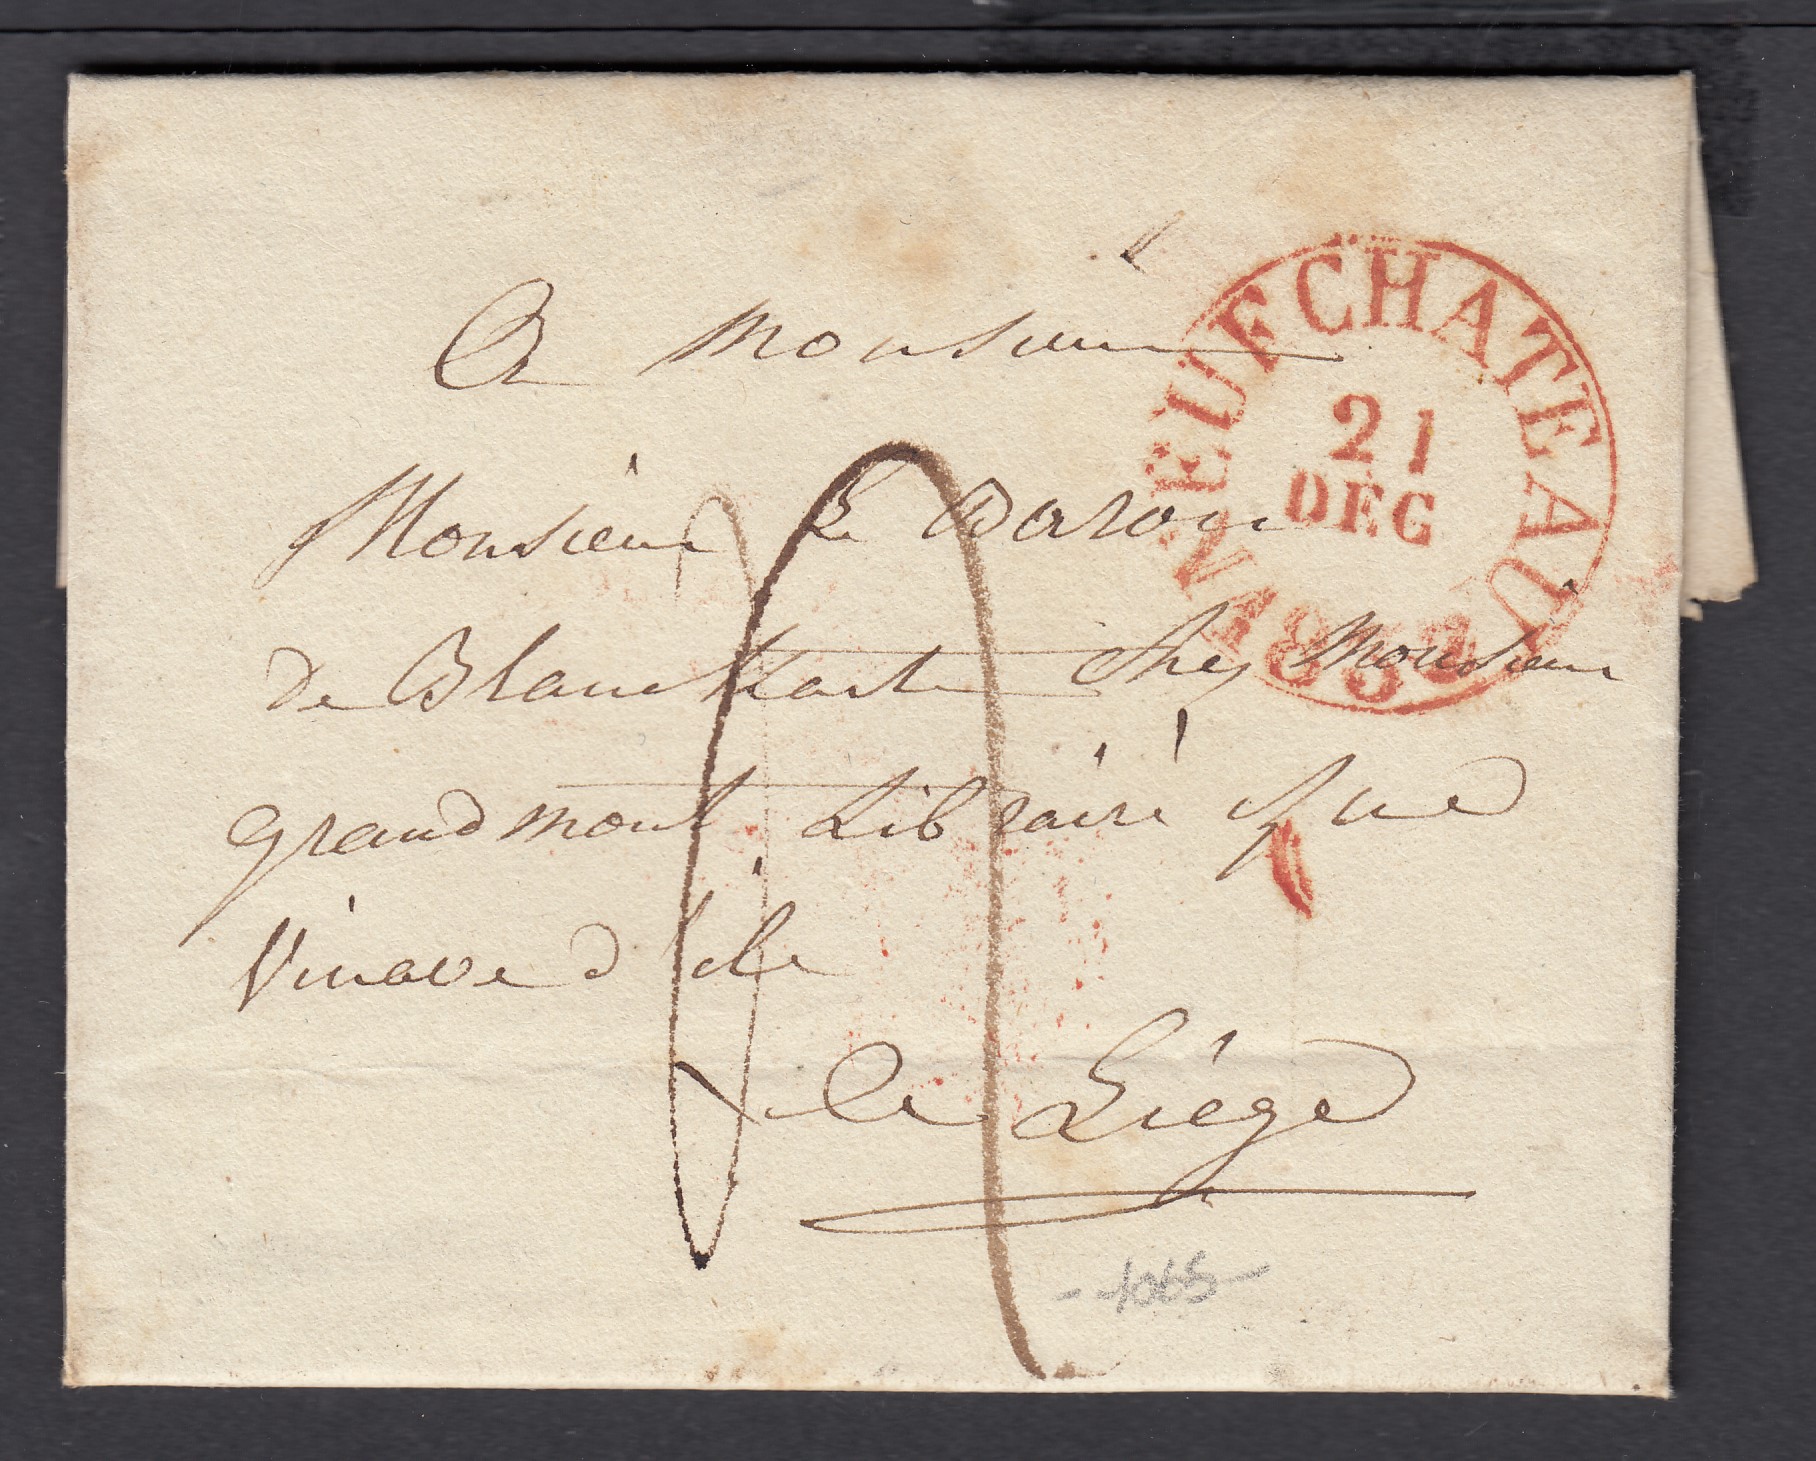 A Monsieur
NEUFCHATEAU
21
DEC
Monsieur Le Baron
de Blanckart Chez Monsieur
grandmont Libraire rue
Vinave d'ile
a Liége